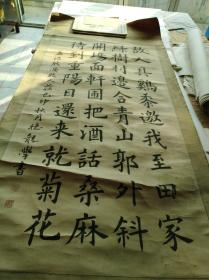 故人具鷄黍邀我至田家
綠樹村邊合青山郭外斜
開場面軒圃把酒話桑麻
待到重陽日還來就菊花
秋月 學書